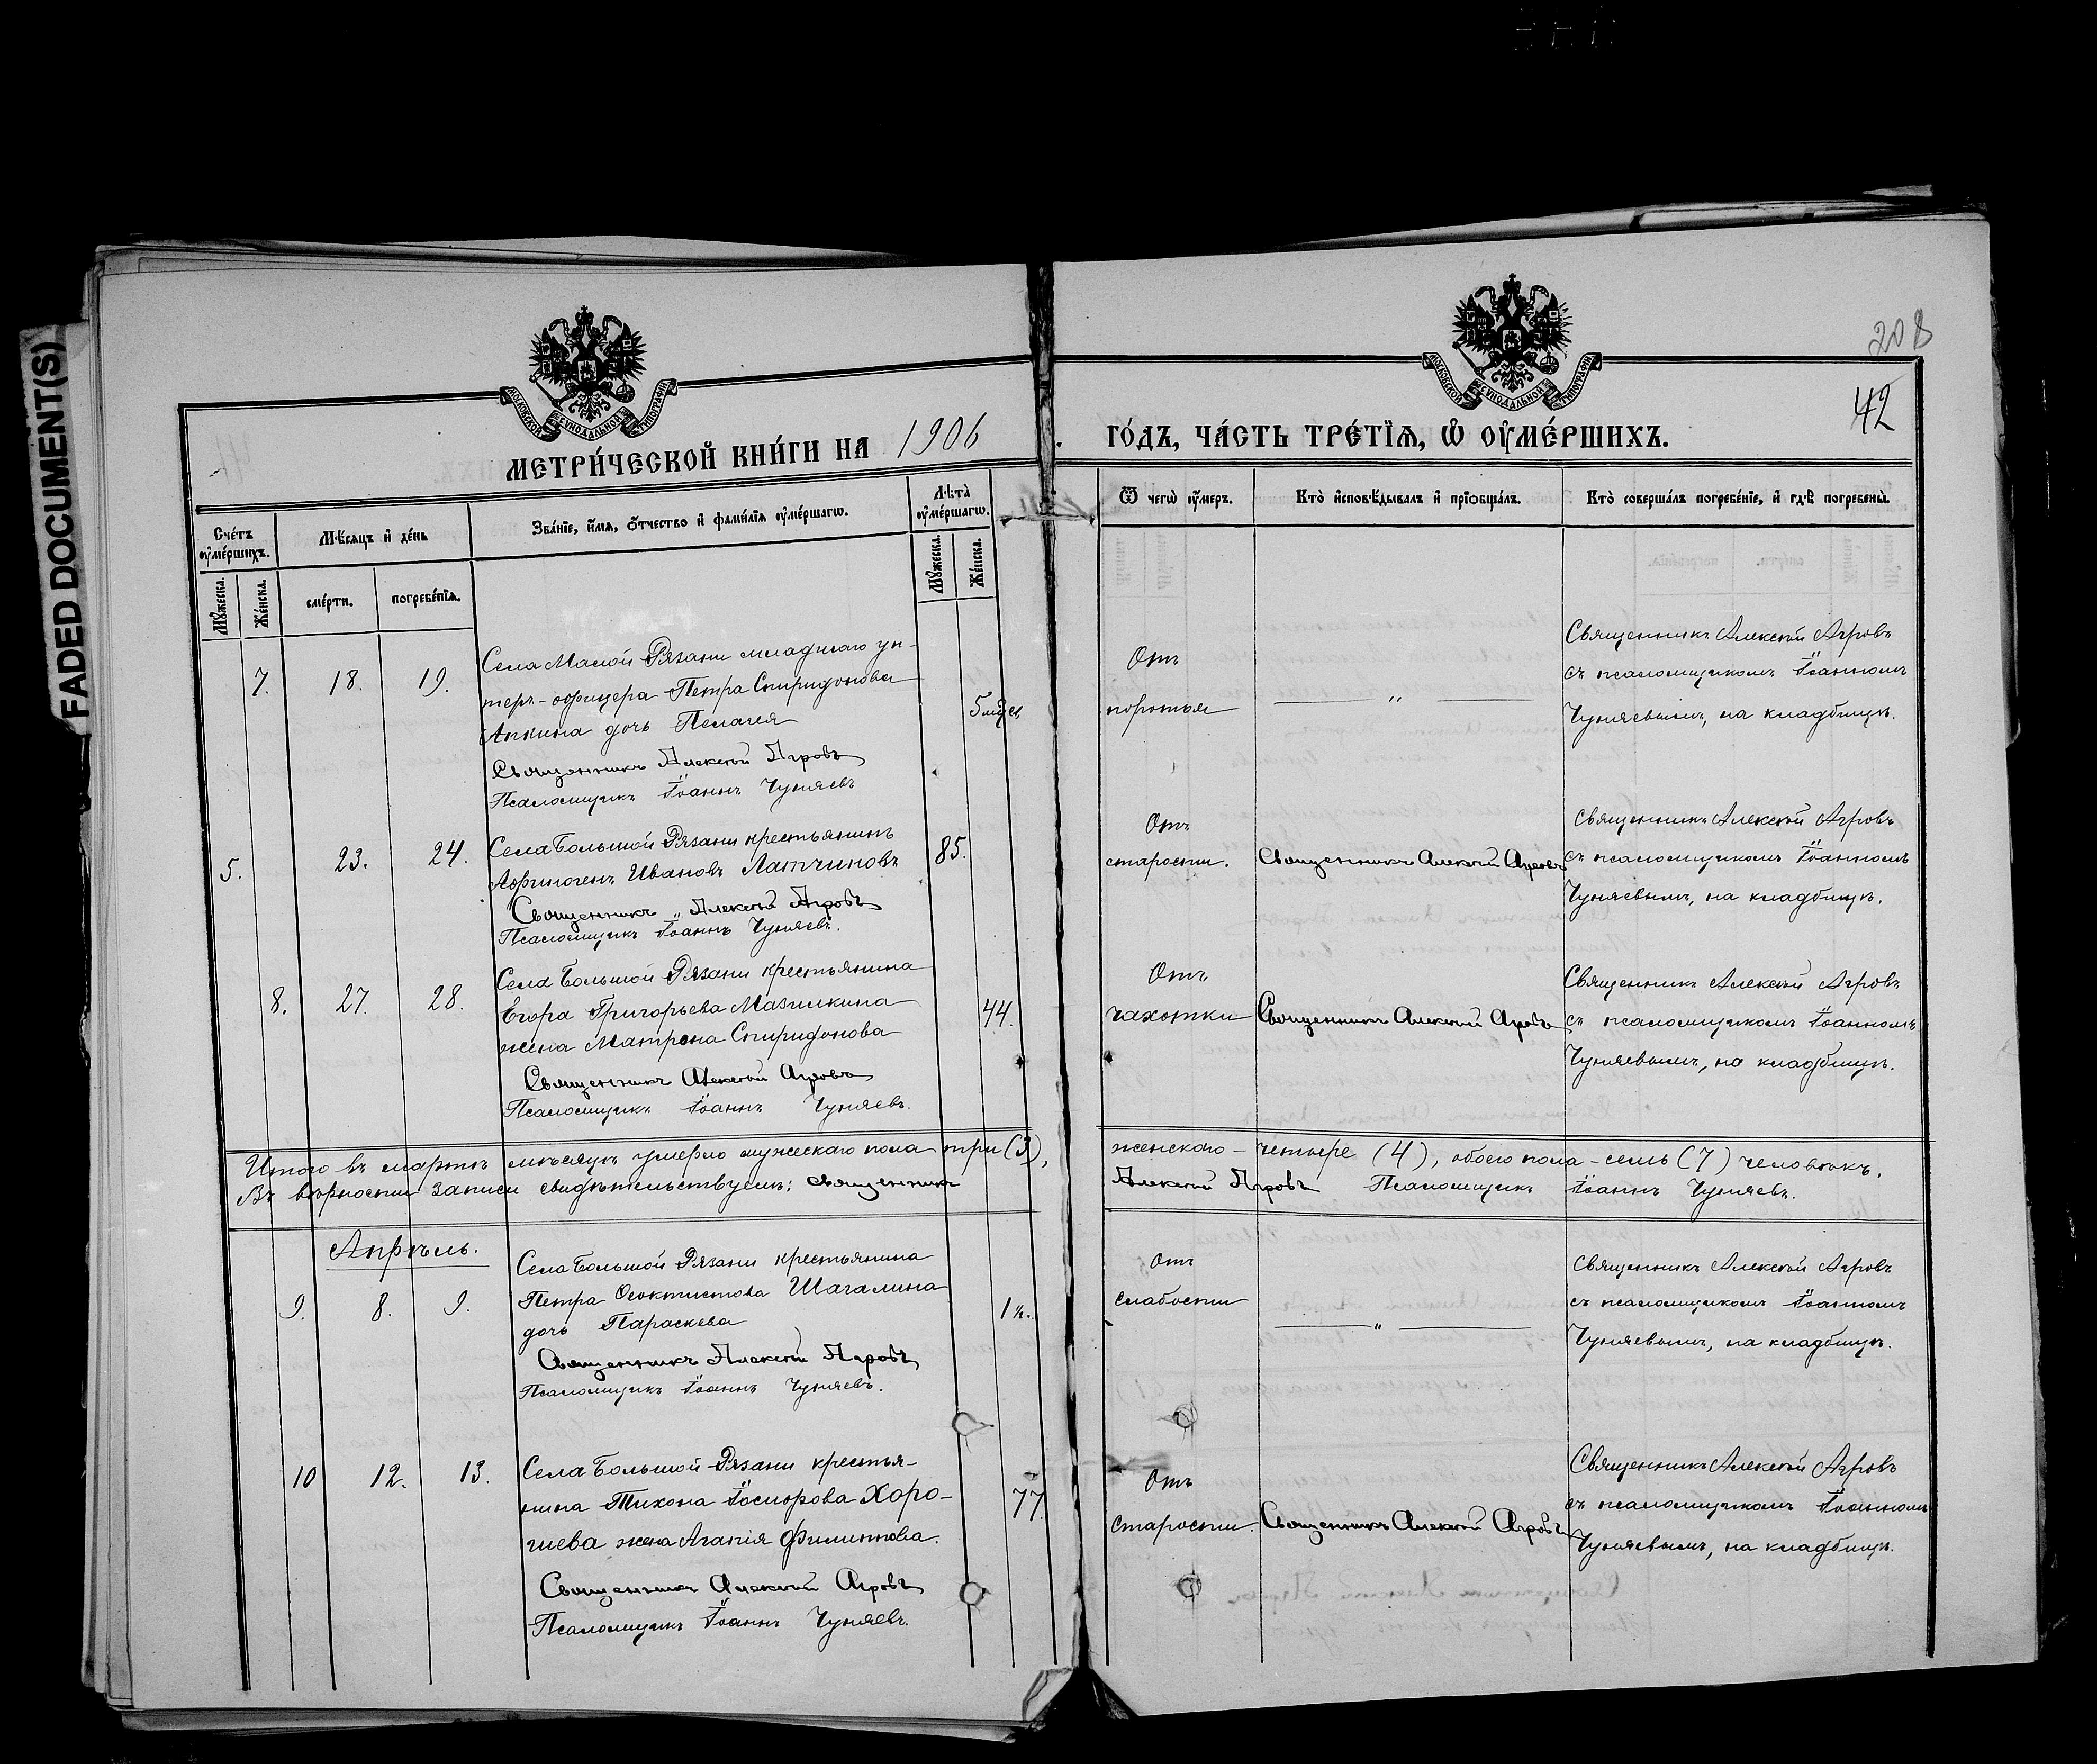 FADED DOCUMENT(S)
208
42
МОСКОВСКОЙ СѴНОДАЛЬНОЙ ТИПОГРАФІИ
МОСКОВСКОЙ СѴНОДАЛЬНОЙ ТИПОГРАФІИ
МЕТРИ́ЧЕСКОЙ КНИ́ГИ НА 1906
ГО́ДЪ, ЧА́СТЬ ТРЕ́ТІѦ, Ѽ ОУ҆МЕ́РШИХЪ.
Сче́тъ оу҆ме́ршихъ.
Мѣ́сяцъ и҆ де́нь
Зва́нїе, и҆́мѧ, ѻ҆́тчество и҆ фами́лїѧ оу҆ме́ршагѡ.
Лѣ̀та оу҆ме́ршагѡ.
Ѿ чегѡ̀ оу҆́меръ.
Кто̀ и҆сповѣ́дывалъ и҆ прїѡбща́лъ.
Кто̀ соверша́лъ погребе́нїе, и҆ гдѣ̀ погребены̀.
Мꙋ́жеска.
Же́нска.
сме́рти.
погребе́нїѧ.
Мꙋ́жеска.
Же́нска.
7. 18. 19.
Села Малой Рязани младшаго ун-
теръ-офицера Петра Спиридонова
Апкина дочь Пелагея
5 мѣс.
Священникъ Алексѣй Агровъ
Псаломщикъ Іоаннъ Чуняевъ
Отъ
поротья
„
Священникъ Алексѣй Агровъ
съ псаломщикомъ Іоанномъ
Чуняевымъ, на кладбищѣ.
5. 23. 24.
Села Большой Рязани крестьянинъ
Афиногенъ Ивановъ Латчиновъ
85.
Священникъ Алексѣй Агровъ
Псаломщикъ Іоаннъ Чуняевъ.
Отъ
старости.
Священникъ Алексѣй Агровъ
Священникъ Алексѣй Агровъ
съ псаломщикомъ Іоанномъ
Чуняевымъ, на кладбищѣ.
8. 27. 28.
Села Большой Рязани крестьянина
Егора Григорьева Мазилкина
жена Матрона Спиридонова
44.
Священникъ Алексѣй Агровъ
Псаломщикъ Іоаннъ Чуняевъ.
Отъ
чахотки
Священникъ Алексѣй Агровъ
Священникъ Алексѣй Агровъ
съ псаломщикомъ Іоанномъ
Чуняевымъ, на кладбищѣ.
Итого въ мартѣ мѣсяцѣ умерло мужескаго пола три (3),
женскаго – четыре (4), обоего пола – семь (7) человѣкъ.
Въ вѣрности записи свидѣтельствуемъ: Священникъ
Алексѣй Агровъ Псаломщикъ Іоаннъ Чуняевъ.
Апрѣль.
9. 8. 9.
Села Большой Рязани крестьянина
Петра Ѳеоктистова Шагалина
дочь Параскева
1½.
Священникъ Алексѣй Агровъ
Псаломщикъ Іоаннъ Чуняевъ.
Отъ
слабости
„
Священникъ Алексѣй Агровъ
съ псаломщикомъ Іоанномъ
Чуняевымъ, на кладбищѣ.
10 12. 13.
Села Большой Рязани крестья-
нина Тихона Хоро-
шева жена Агапія Филиппова.
77.
Священникъ Алексѣй Агровъ
Псаломщикъ Іоаннъ Чуняевъ.
Отъ
старости.
Священникъ Алексѣй Агровъ
Священникъ Алексѣй Агровъ
съ псаломщикомъ Іоанномъ
Чуняевымъ, на кладбищѣ.